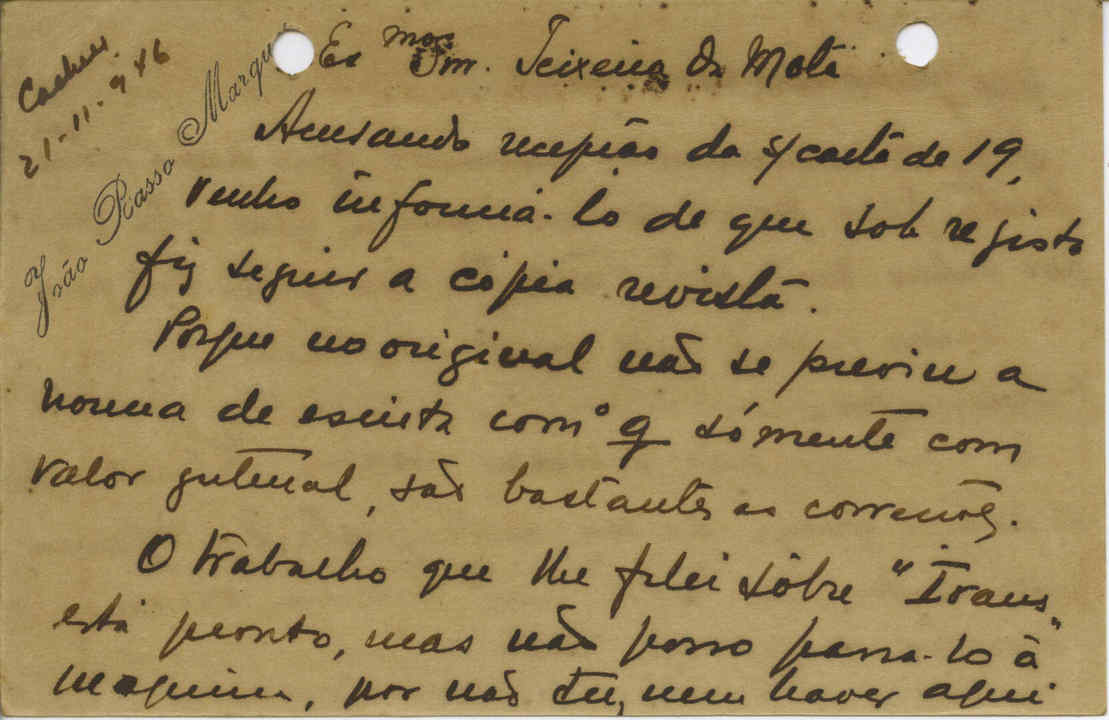 Cacheu
21-11-946
João Basso Marques
Ex mos Snr. Teixeira da Mota
Acusando recepção da s/ carta de 19,
venho informá-lo de que sob registo
fiz seguir a cópia revista.
Porque no original não se previu a
norma de escrita com o g sómente com
valor gutural, são bastantes as correcções.
O trabalho que lhe falei sôbre "Irans"
está pronto, mas não posso passa-lo à
maquina, por não ter, nem haver aqui